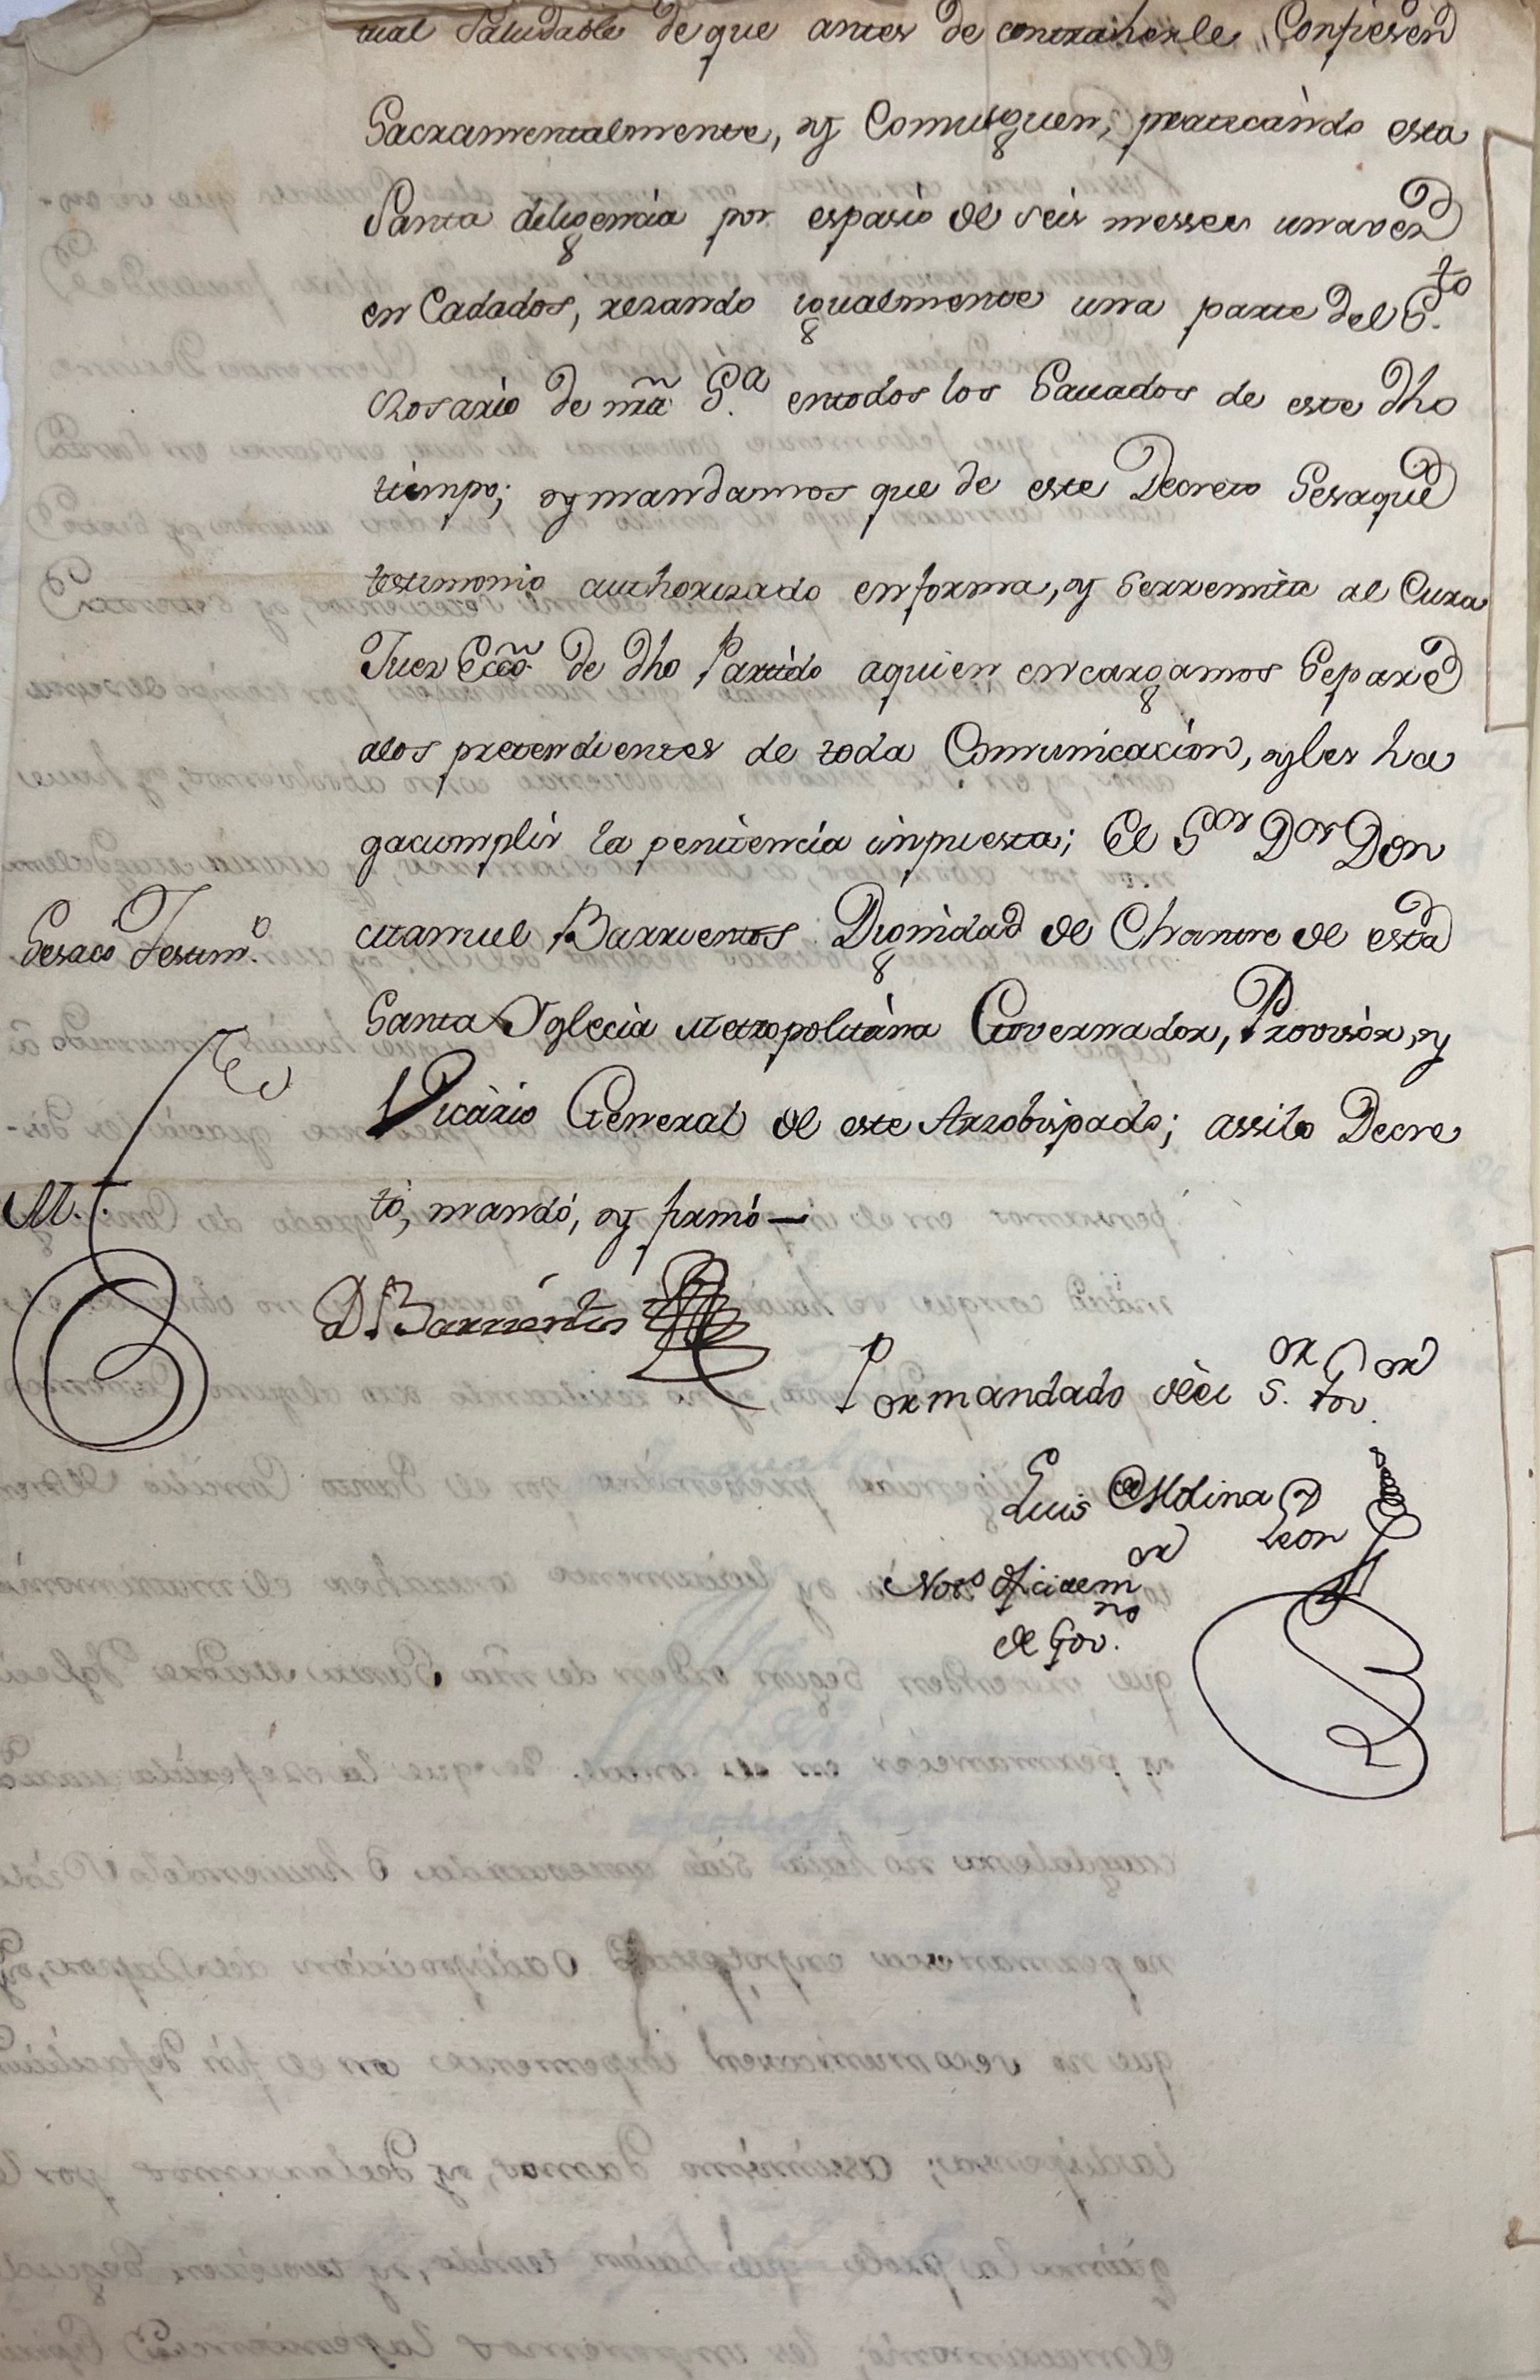 tual Saludable de que antes de contraherle Confiesen
Sacramentalmente, y Comulguen, practicando esta
Santa diligencia por espasio de seis messes unavez
en Cadados, rezando igualmente una parte del S.to
Rosario de ñra S.a entodos los Savados de este dho
tiempo; ymandamos que de este Decreto Sesaque
testimonio authorizado enforma, y Serremita al Cura
Juez Eccõ de dho Partido aquien encargamos Separe
alos pretendientes de toda Comunicacion, yles ha
gacumplir la penitencia inpuesta; El S.or D.or Don
Manuel Barrientos Dignidad de Chantre de esta
Sesacó Testim.o
Santa Yglecia Metropolitana Governador, Provisor, y
Vicario General de este Arzobispado; assilo Decre
tó, mandó, y firmó—
M.
D.r Barrientos
Pormandado del S.or Gov.or
Luis de Molina
Leon
Not.o ofici de m.or
de Gov.no